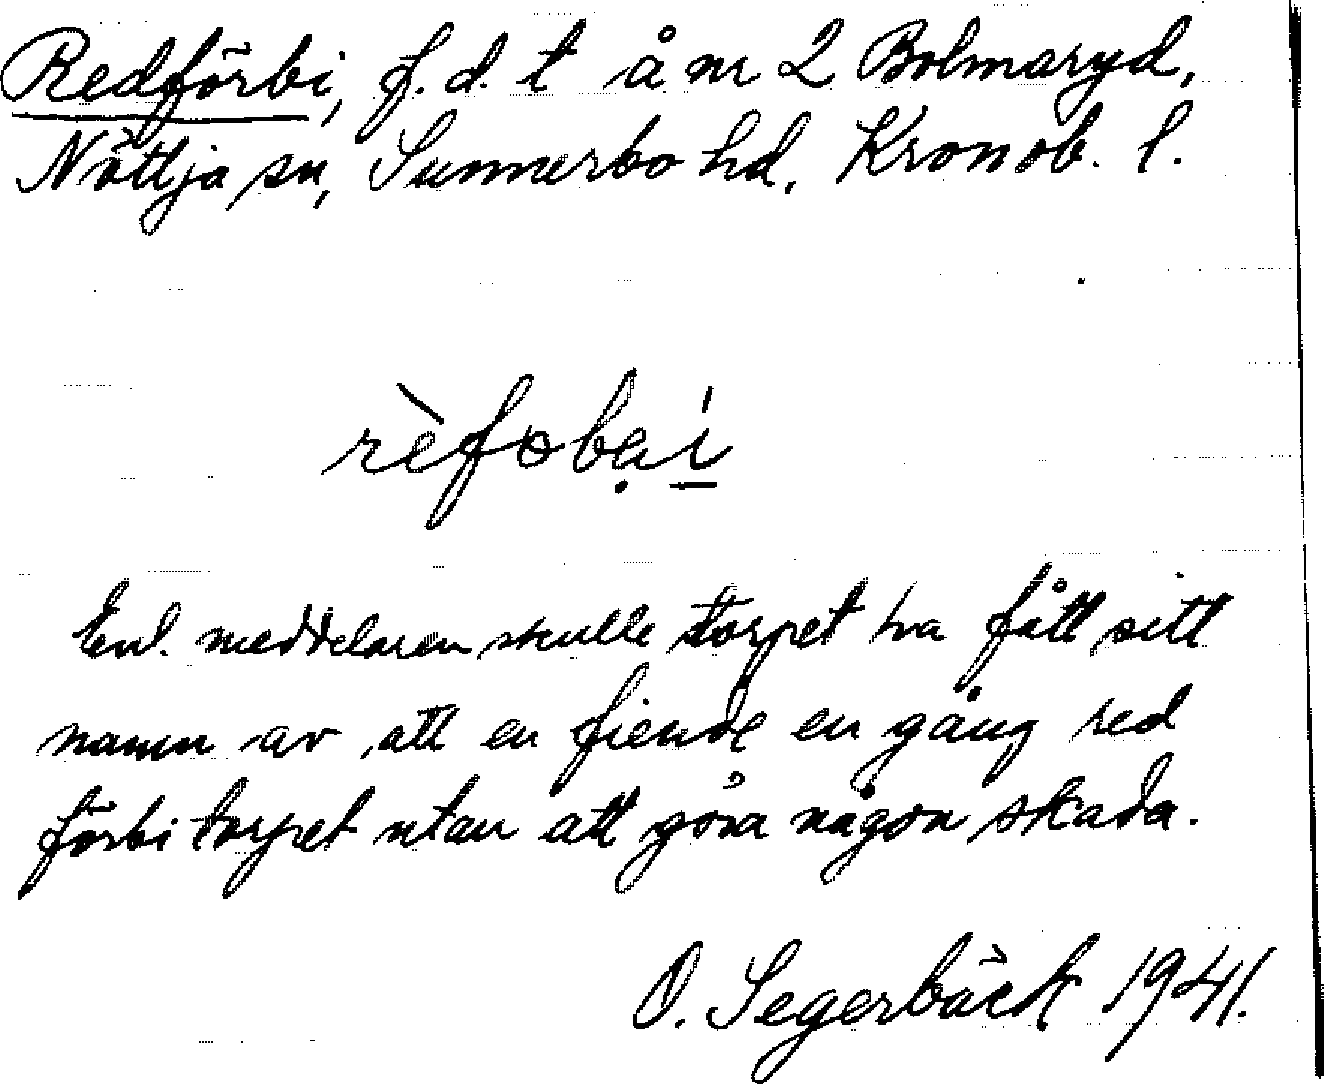 Redförbi, f. d. t å nr 2 Bolmaryd,
Nöttja sn, Sunnerbo hd, Kronob. l.
rèfobẹi̱
Enl. meddelaren skulle torpet ha fått sitt
namn av att en fiende en gång red
förbi torpet utan att göra någon skada.
O. Segerbäck 1941.